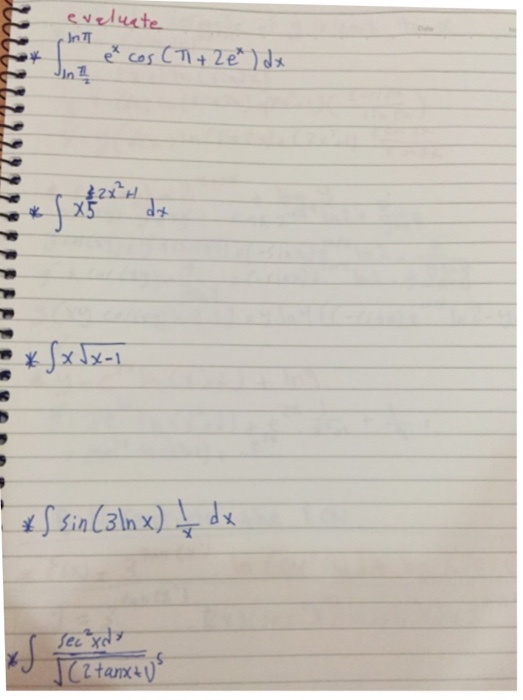 evaluate
* ∫_{ln π/2}^{ln π} e^x cos(π + 2e^x) dx
* ∫ x5^{2x²+1} dx
* ∫ x√(x-1)
* ∫ sin(3lnx) 1/x dx
* ∫ sec²xdx / √((2tanx+1)^5)